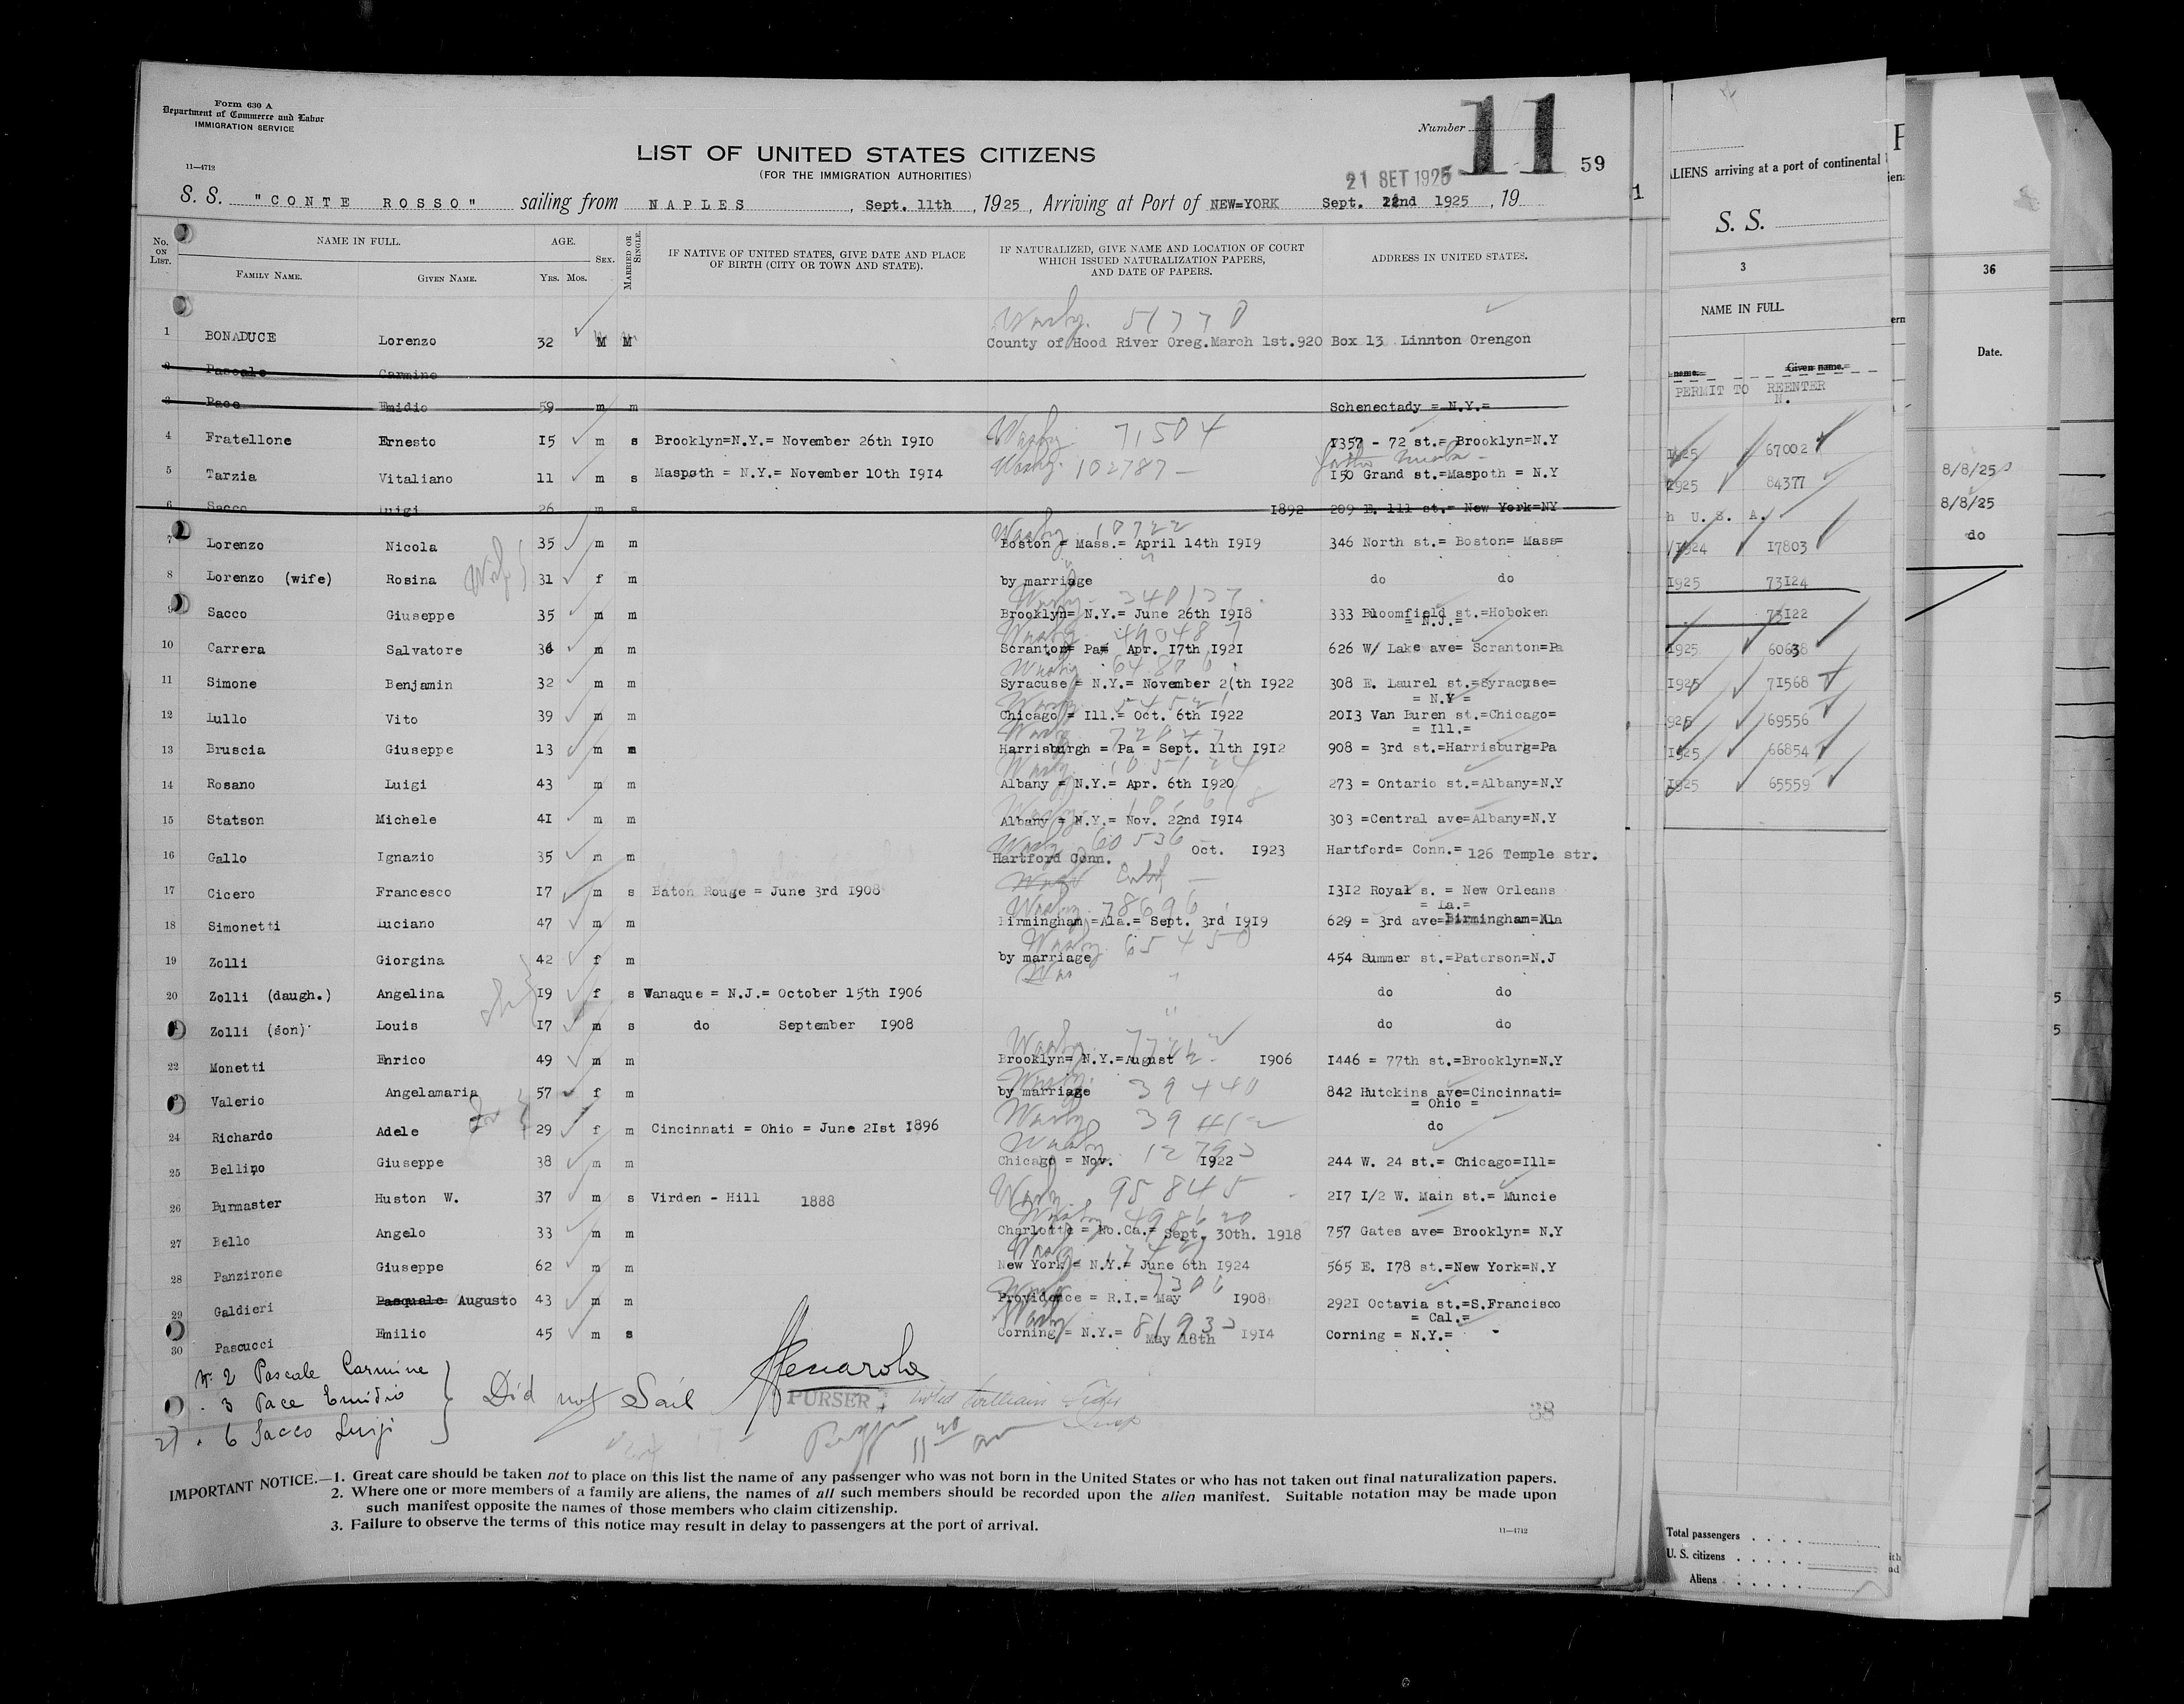 Form 630 A
Department of Commerce and Labor
IMMIGRATION SERVICE
11—4712
Number 11
59
LIST OF UNITED STATES CITIZENS
(FOR THE IMMIGRATION AUTHORITIES)
21 SET 1925
S. S. "CONTE ROSSO" sailing from NAPLES, Sept. 11th, 1925, Arriving at Port of NEW=YORK Sept. 22nd 1925, 19
No. ON LIST. NAME IN FULL. AGE. SEX. MARRIED OR SINGLE. IF NATIVE OF UNITED STATES, GIVE DATE AND PLACE OF BIRTH (CITY OR TOWN AND STATE). IF NATURALIZED, GIVE NAME AND LOCATION OF COURT WHICH ISSUED NATURALIZATION PAPERS, AND DATE OF PAPERS. ADDRESS IN UNITED STATES.
FAMILY NAME. GIVEN NAME. YRS. MOS.
1 BONADUCE Lorenzo 32 M M County of Hood River Oreg.March 1st.920 Box 13 Linnton Orengon
2 Pascale Carmine
3 Pace Emidio 59 m m Schenectady = N.Y.=
4 Fratellone Ernesto I5 m s Brooklyn=N.Y.= November 26th I9I0 71504 I357 - 72 st.= Brooklyn=N.Y
5 Tarzia Vitaliano 11 m s Maspoth = N.Y.= November 10th I9I4 102787 I50 Grand st.=Maspoth = N.Y
6 Sacco Luigi 26 m s 1892 209 E. 111 st.= New York=NY
7 Lorenzo Nicola 35 m m Boston = Mass.= April 14th I9I9 346 North st.= Boston= Mass=
8 Lorenzo (wife) Rosina 31 f m by marriage do do
9 Sacco Giuseppe 35 m m Brooklyn= N.Y.= June 26th I9I8 333 Bloomfield st.=Hoboken
= N.J.=
10 Carrera Salvatore 34 m m Scranton= Pa= Apr. I7th I92I 626 W/ Lake ave= Scranton=Pa
11 Simone Benjamin 32 m m Syracuse = N.Y.= November 2(th I922 308 E. Laurel st.=Syracuse=
= N.Y =
12 Lullo Vito 39 m m Chicago = Ill.= Oct. 6th I922 20I3 Van Buren st.=Chicago=
= Ill.=
13 Bruscia Giuseppe I3 m m Harrisburgh = Pa = Sept. 11th I9I2 908 = 3rd st.=Harrisburg=Pa
14 Rosano Luigi 43 m m Albany = N.Y.= Apr. 6th I920 273 = Ontario st.=Albany=N.Y
15 Statson Michele 4I m m Albany = N.Y.= Nov. 22nd I9I4 303 =Central ave=Albany=N.Y
16 Gallo Ignazio 35 m m 60536 Hartford Conn. Oct. I923 Hartford= Conn.= 126 Temple str.
17 Cicero Francesco I7 m s Baton Rouge = June 3rd I908 I3I2 Royal s. = New Orleans
= La.=
18 Simonetti Luciano 47 m m 78696 Birmingham =Ala.= Sept. 3rd I9I9 629 = 3rd ave=Birmingham=Ala
19 Zolli Giorgina 42 f m by marriage 65450 454 Summer st.=Paterson=N.J
20 Zolli (daugh.) Angelina I9 f s Wanaque = N.J.= October I5th I906 do do
Zolli (son) Louis I7 m s do September I908 do do
22 Monetti Enrico 49 m m Brooklyn= N.Y.=August I906 I446 = 77th st.=Brooklyn=N.Y
Valerio Angelamaria 57 f m by marriage 39440 842 Hutckins ave=Cincinnati=
= Ohio =
24 Richardo Adele 29 f m Cincinnati = Ohio = June 2Ist I896 do
25 Bellino Giuseppe 38 m m Chicago = Nov. I922 244 W. 24 st.= Chicago=Ill=
26 Burmaster Huston W. 37 m s Virden - Hill 1888 95845 2I7 I/2 W. Main st.= Muncie
27 Bello Angelo 33 m m Charlotte = No.Ca.= Sept. 30th. 1918 757 Gates ave= Brooklyn= N.Y
28 Panzirone Giuseppe 62 m m New York= N.Y.= June 6th I924 565 E. I78 st.=New York=N.Y
29 Galdieri Pasquale Augusto 43 m m Providence = R.I.= May I908 292I Octavia st.=S.Francisco
= Cal.=
30 Pascucci Emilio 45 m s Corning = N.Y.= May 18th I9I4 Corning = N.Y.=
N. 2 Pascale Carmine
. 3 Pace Emidio } Did not Sail
. 6 Sacco Luigi
27
PURSER
38
IMPORTANT NOTICE.—1. Great care should be taken not to place on this list the name of any passenger who was not born in the United States or who has not taken out final naturalization papers.
2. Where one or more members of a family are aliens, the names of all such members should be recorded upon the alien manifest. Suitable notation may be made upon
such manifest opposite the names of those members who claim citizenship.
3. Failure to observe the terms of this notice may result in delay to passengers at the port of arrival.
11—4712
1
ALIENS arriving at a port of continental
S. S.
3
NAME IN FULL.
name. Given name.
PERMIT TO REENTER
N.
I925 67002
I925 84377
h U. S. A.
/I924 I7803
I925 73I24
73I22
I925 60638
I925 7I568
925 69556
I925 66854
I925 65559
Total passengers
U. S. citizens
Aliens
36
Date.
8/8/25
8/8/25
do
5
5